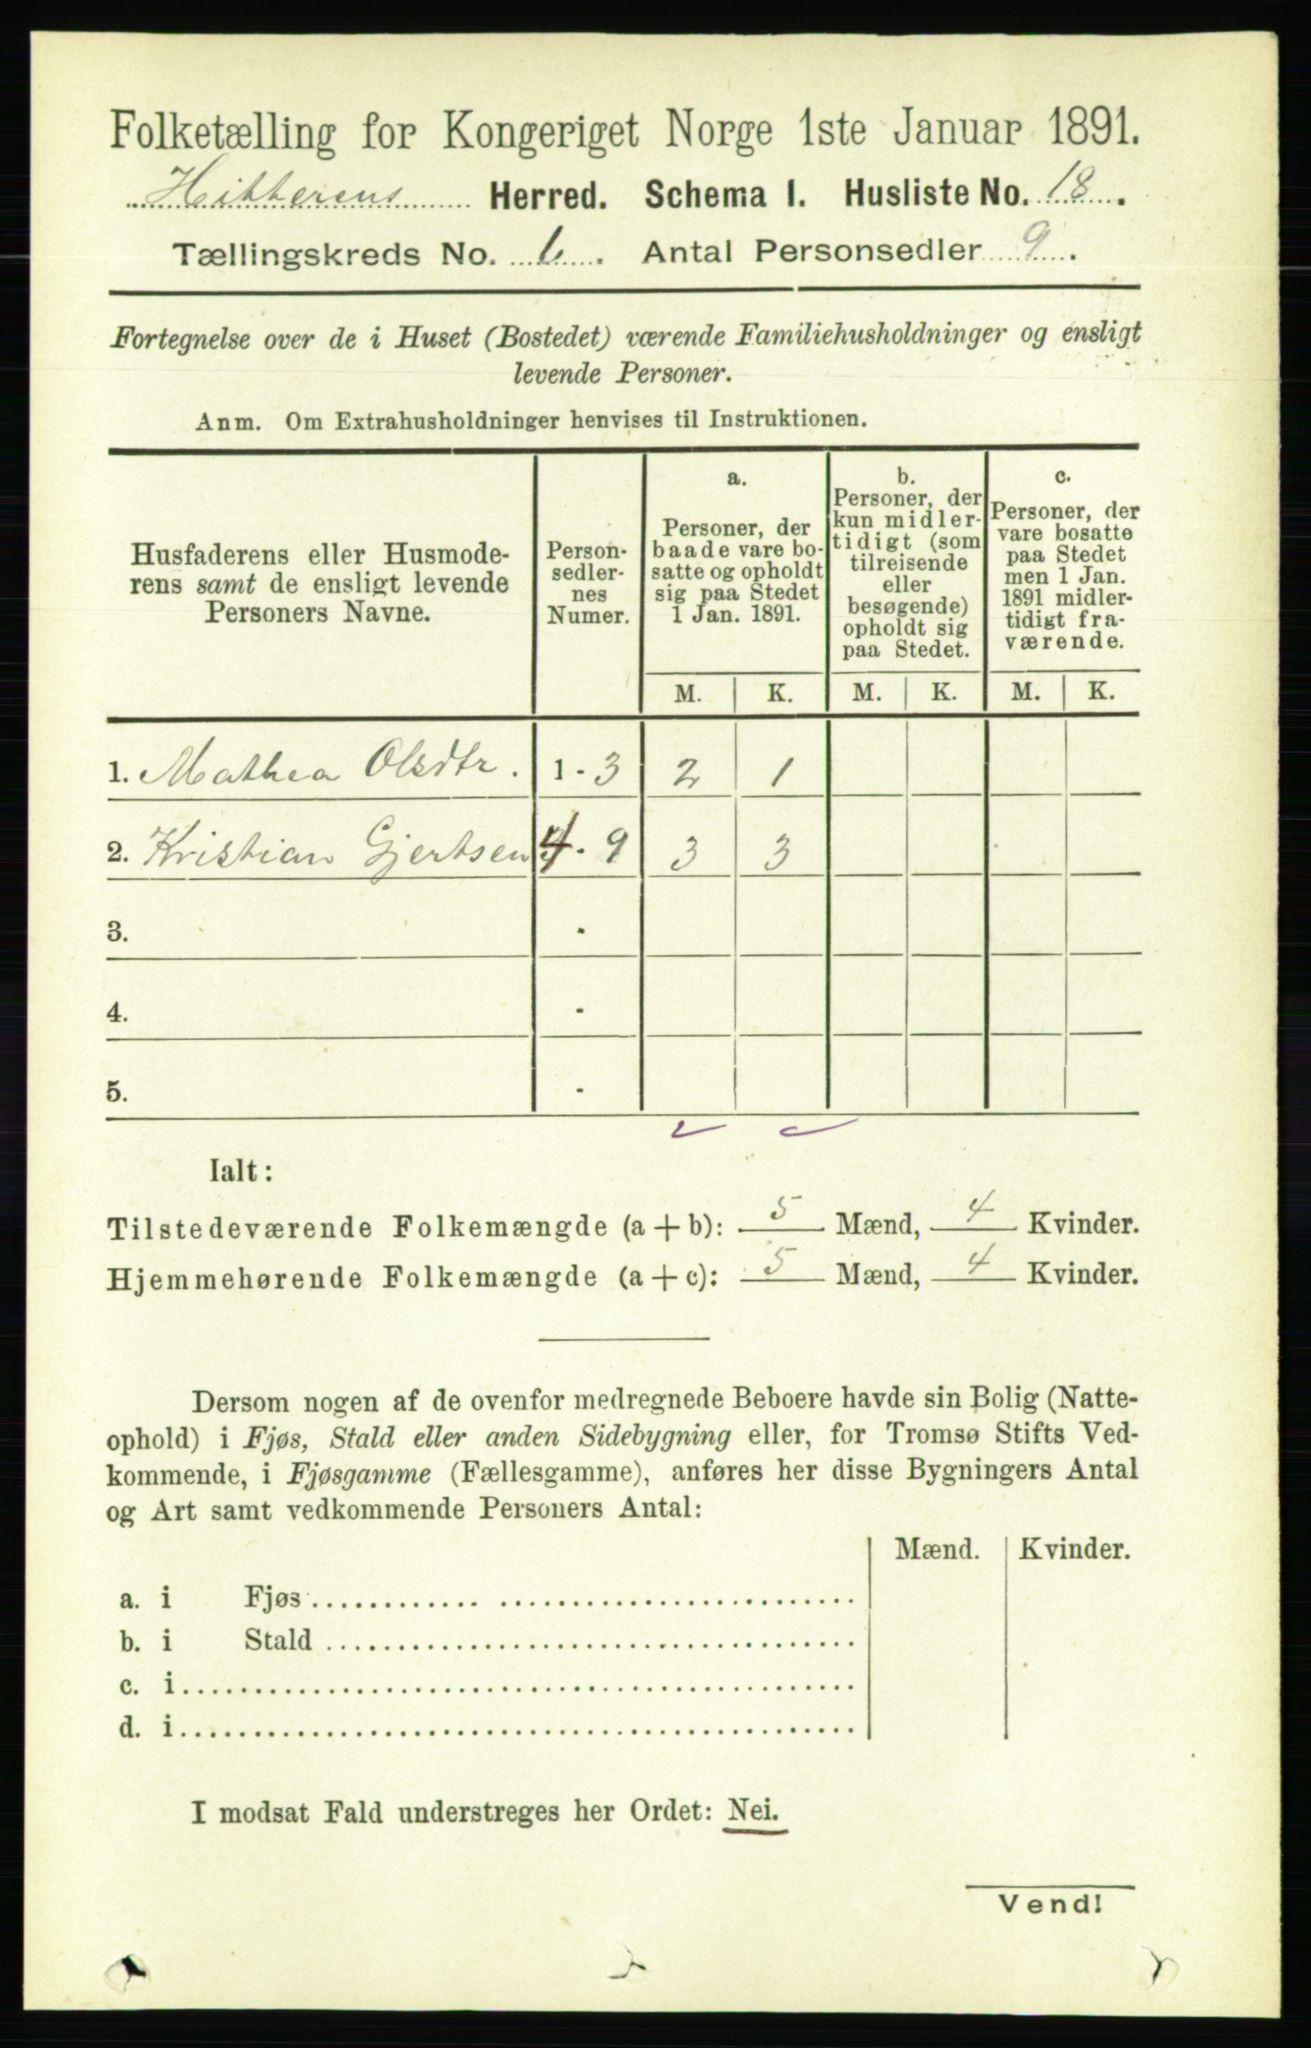 Folketælling for Kongeriget Norge 1ste Januar 1891.
Hitterens Herred. Schema I. Husliste No. 18.
Tællingskreds No. 6. Antal Personsedler 9.
Fortegnelse over de i Huset (Bostedet) værende Familiehusholdninger og ensligt
levende Personer.
Anm. Om Extrahusholdninger henvises til Instruktionen.
Husfaderens eller Husmode-
rens samt de ensligt levende
Personers Navne.
Person-
sedler-
nes
Numer.
a.
Personer, der
baade vare bo-
satte og opholdt
sig paa Stedet
1 Jan. 1891.
b.
Personer, der
kun midler-
tidigt (som
tilreisende
eller
besøgende)
opholdt sig
paa Stedet.
c.
Personer, der
vare bosatte
paa Stedet
men 1 Jan.
1891 midler-
tidigt fra-
værende.
M. K. M. K. M. K.
1. Mathea Olsdtr. 1 - 3 2 1
2. Kristian Gjertsen 4 - 9 3 3
3. -
4. -
5. -
Ialt:
Tilstedeværende Folkemængde (a + b): 5 Mænd, 4 Kvinder.
Hjemmehørende Folkemængde (a + c): 5 Mænd, 4 Kvinder.
Dersom nogen af de ovenfor medregnede Beboere havde sin Bolig (Natte-
ophold) i Fjøs, Stald eller anden Sidebygning eller, for Tromsø Stifts Ved-
kommende, i Fjøsgamme (Fællesgamme), anføres her disse Bygningers Antal
og Art samt vedkommende Personers Antal:
Mænd. Kvinder.
a. i Fjøs
b. i Stald
c. i
d. i
I modsat Fald understreges her Ordet: Nei.
Vend!